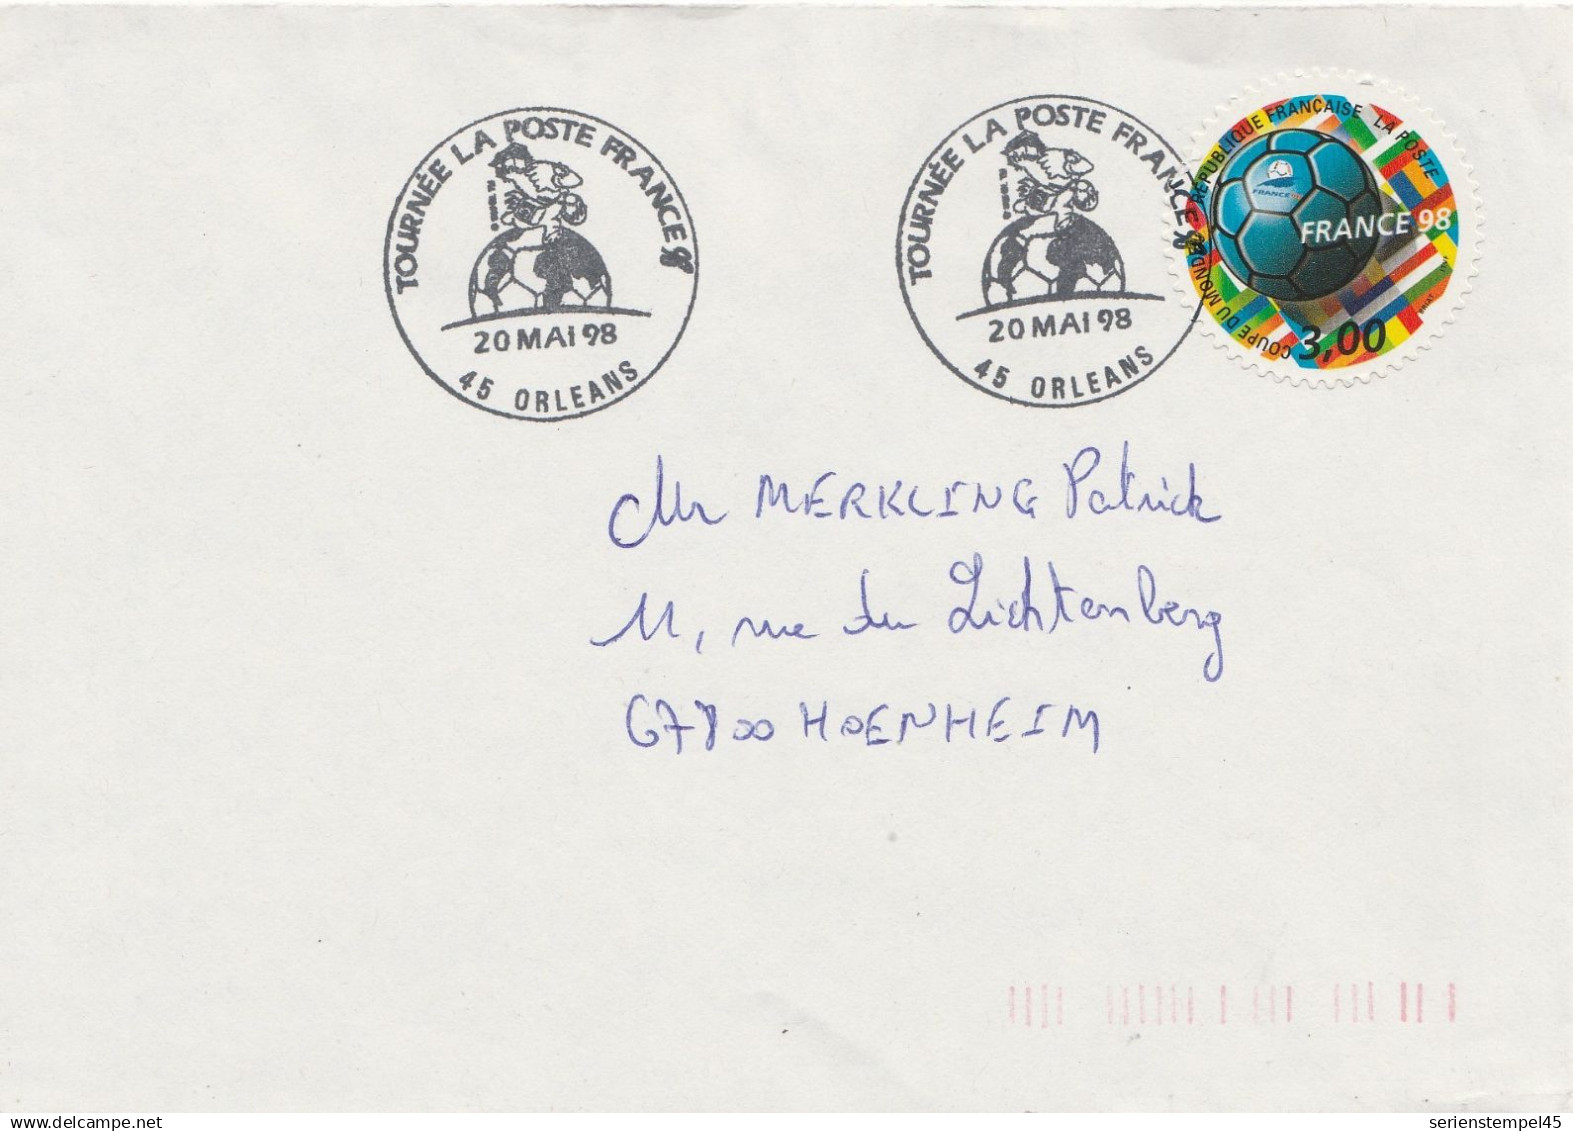 TOURNÉE LA POSTE FRANCE 98
20 MAI 98
45 ORLEANS
TOURNÉE LA POSTE FRANCE 98
20 MAI 98
45 ORLEANS
RÉPUBLIQUE FRANÇAISE LA POSTE
FRANCE 98
FRANCE 98
COUPE DU MONDE
3,00
Mr MERKLING Patrick
11, rue du Lichtenberg
67800 HOENHEIM
delcampe.net
serienstempel45